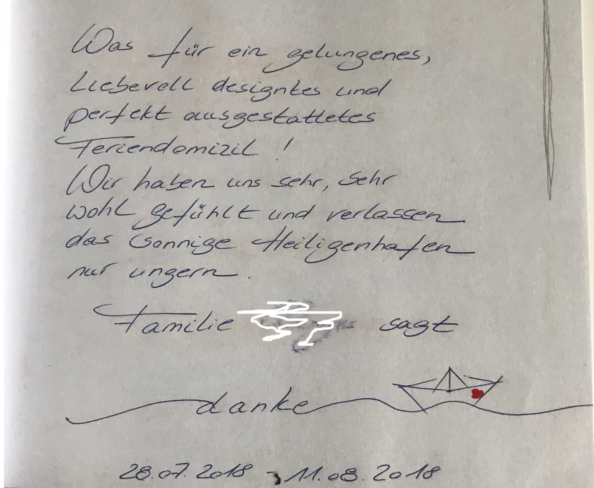 Was für ein gelungenes,
Liebevoll designtes und
perfekt ausgestattetes
Feriendomizil !
Wir haben uns sehr, sehr
wohl gefühlt und verlassen
das sonnige Heiligenhafen
nur ungern.
Familie sagt
danke
28.07.2018 - 11.08.2018